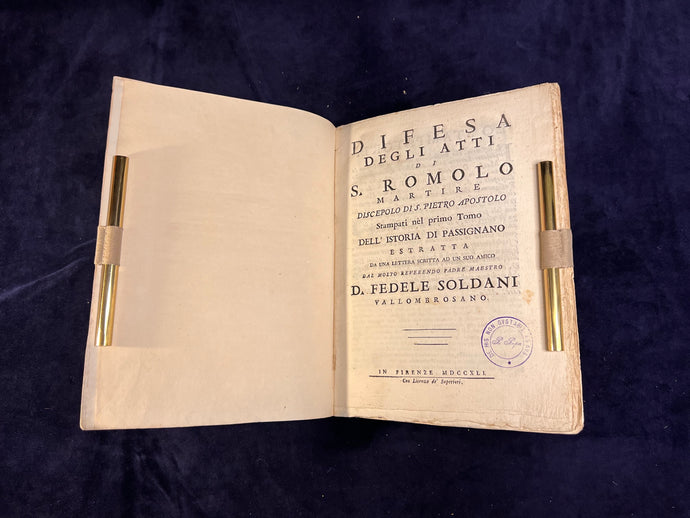 DIFESA
DEGLI ATTI
DI
S. ROMOLO
MARTIRE
DISCEPOLO DI S. PIETRO APOSTOLO
Stampati nel primo Tomo
DELL' ISTORIA DI PASSIGNANO
ESTRATTA
DA UNA LETTERA SCRITTA AD UN SUO AMICO
DAL MOLTO REVERENDO PADRE MAESTRO
D. FEDELE SOLDANI
VALLOMBROSANO.
DE HIS NON DVBITANDVM
IN FIRENZE MDCCXLI.
Con Licenza de' Superiori.